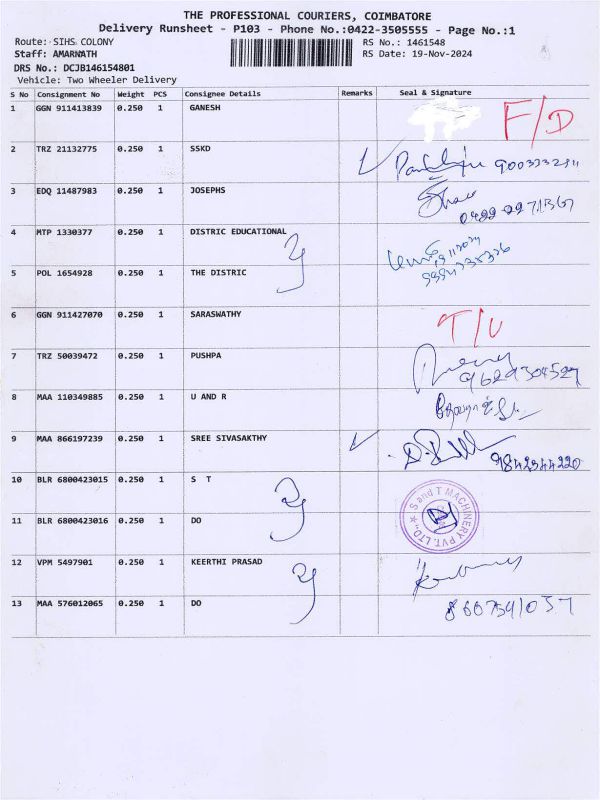 THE PROFESSIONAL COURIERS, COIMBATORE
Delivery Runsheet - P103 - Phone No.:0422-3505555 - Page No.:1
Route: SIHS COLONY RS No.: 1461548
Staff: AMARNATH RS Date: 19-Nov-2024
DRS No.: DCJB146154801
Vehicle: Two Wheeler Delivery
S No Consignment No Weight PCS Consignee Details Remarks Seal & Signature
1 GGN 911413839 0.250 1 GANESH F/D
2 TRZ 21132775 0.250 1 SSKD
3 EDQ 11487983 0.250 1 JOSEPHS
4 MTP 1330377 0.250 1 DISTRIC EDUCATIONAL
5 POL 1654928 0.250 1 THE DISTRIC
6 GGN 911427070 0.250 1 SARASWATHY T/U
7 TRZ 50039472 0.250 1 PUSHPA 9629304527
8 MAA 110349885 0.250 1 U AND R
9 MAA 866197239 0.250 1 SREE SIVASAKTHY 9842344220
10 BLR 6800423015 0.250 1 S T
S and T MACHINERY PVT. LTD.,
11 BLR 6800423016 0.250 1 DO
12 VPM 5497901 0.250 1 KEERTHI PRASAD
13 MAA 576012065 0.250 1 DO 8667541057